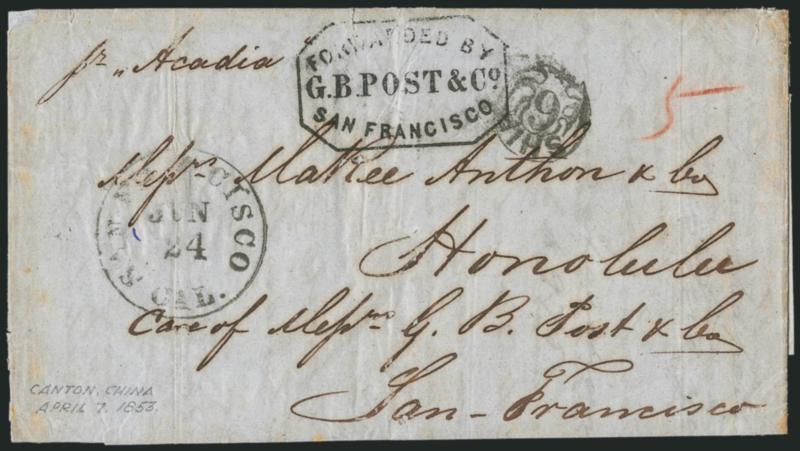 pr "Acadia"
FORWARDED BY
G.B. POST & Co.
SAN FRANCISCO
SHIP
6
5
Messrs Makee Anthon & Co
Honolulu
Care of Messrs G. B. Post & Co
San-Francisco
SAN FRANCISCO
JUN
24
CAL.
CANTON, CHINA
APRIL 7. 1853.